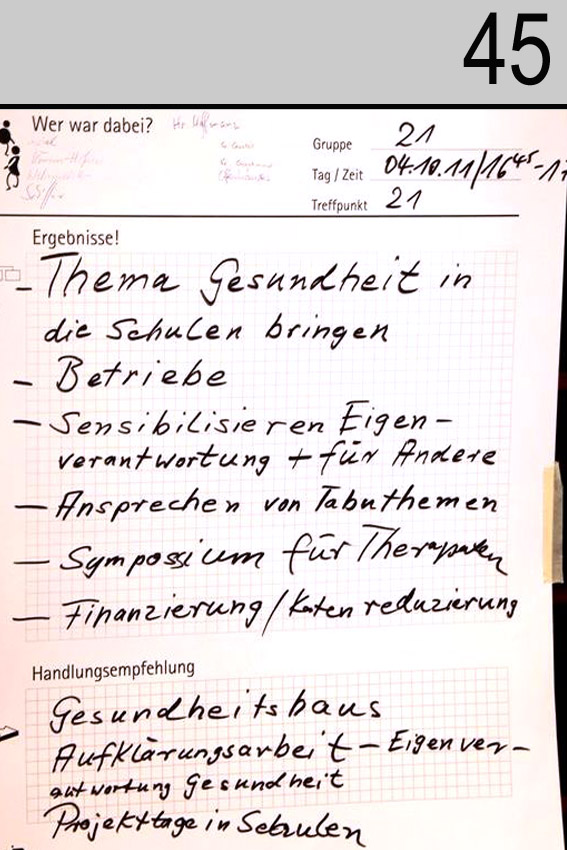 45
Wer war dabei? Hr. Hoffmann
Gruppe 21
Tag / Zeit 04.10.11/16 45-17
Treffpunkt 21
Ergebnisse!
- Thema Gesundheit in
die Schulen bringen
- Betriebe
- Sensibilisieren Eigen-
verantwortung + für Andere
- Ansprechen von Tabuthemen
- Sympossium für Therapeuten
- Finanzierung / Kosten reduzierung
Handlungsempfehlung
Gesundheitshaus
Aufklärungsarbeit - Eigenver-
antwortung Gesundheit
Projekttage in Schulen